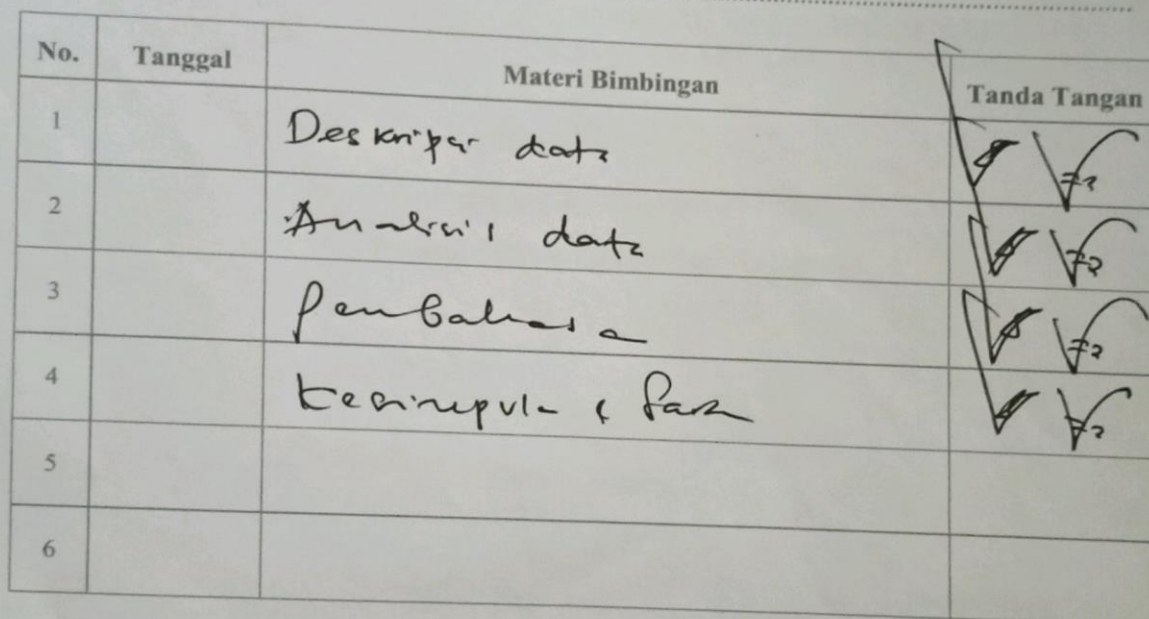 No. Tanggal Materi Bimbingan Tanda Tangan
1 Deskripsi data
2 Analisis data
3 Pembahasa
4 Kesimpula & Sara
5
6